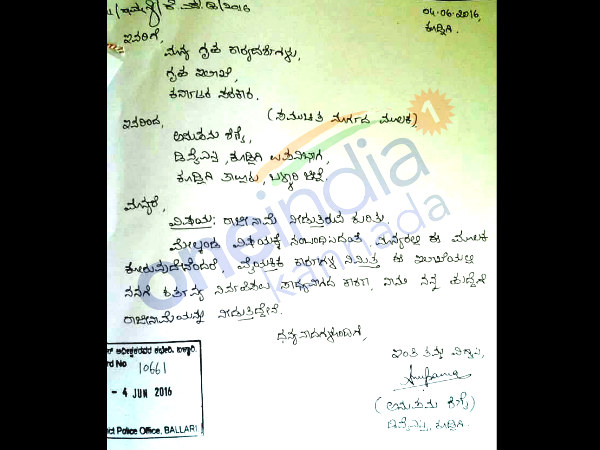 04.06.2016,
ಕೂಡ್ಲಿಗಿ.
ಇವರಿಗೆ,
ಮಾನ್ಯ ಗೃಹ ಕಾರ್ಯದರ್ಶಿಗಳು,
ಗೃಹ ಇಲಾಖೆ,
ಕರ್ನಾಟಕ ಸರಕಾರ.
(ಸಮುಚಿತ ಮಾರ್ಗದ ಮೂಲಕ)
ಇವರಿಂದ,
ಅನುಪಮ ಶೆಣೈ,
ಡಿವೈಎಸ್ಪಿ, ಕೂಡ್ಲಿಗಿ ಉಪವಿಭಾಗ,
ಕೂಡ್ಲಿಗಿ ತಾಲ್ಲೂಕು, ಬಳ್ಳಾರಿ ಜಿಲ್ಲೆ.
ಮಾನ್ಯರೆ,
ವಿಷಯ: ರಾಜೀನಾಮೆ ನೀಡುತ್ತಿರುವ ಕುರಿತು.
ಮೇಲ್ಕಂಡ ವಿಷಯಕ್ಕೆ ಸಂಬಂಧಿಸಿದಂತೆ, ಮಾನ್ಯರಲ್ಲಿ ಈ ಮೂಲಕ
ಕೋರುವುದೇನೆಂದರೆ, ವೈಯಕ್ತಿಕ ಕಾರಣಗಳ ನಿಮಿತ್ತ ಈ ಇಲಾಖೆಯಲ್ಲಿ
ನನಗೆ ಕರ್ತವ್ಯ ನಿರ್ವಹಿಸಲು ಸಾಧ್ಯವಾಗದ ಕಾರಣ, ನಾನು ನನ್ನ ಹುದ್ದೆಗೆ
ರಾಜೀನಾಮೆಯನ್ನು ನೀಡುತ್ತಿದ್ದೇನೆ.
ಧನ್ಯವಾದಗಳೊಂದಿಗೆ,
ಇಂತಿ ತಮ್ಮ ವಿಶ್ವಾಸಿ,
Anupama
(ಅನುಪಮ ಶೆಣೈ)
ಡಿವೈಎಸ್ಪಿ, ಕೂಡ್ಲಿಗಿ.
ಅಧೀಕ್ಷಕರವರ ಕಛೇರಿ, ಬಳ್ಳಾರಿ.
No 10661
- 4 JUN 2016
Police Office, BALLARI
oneindia
1
kannada